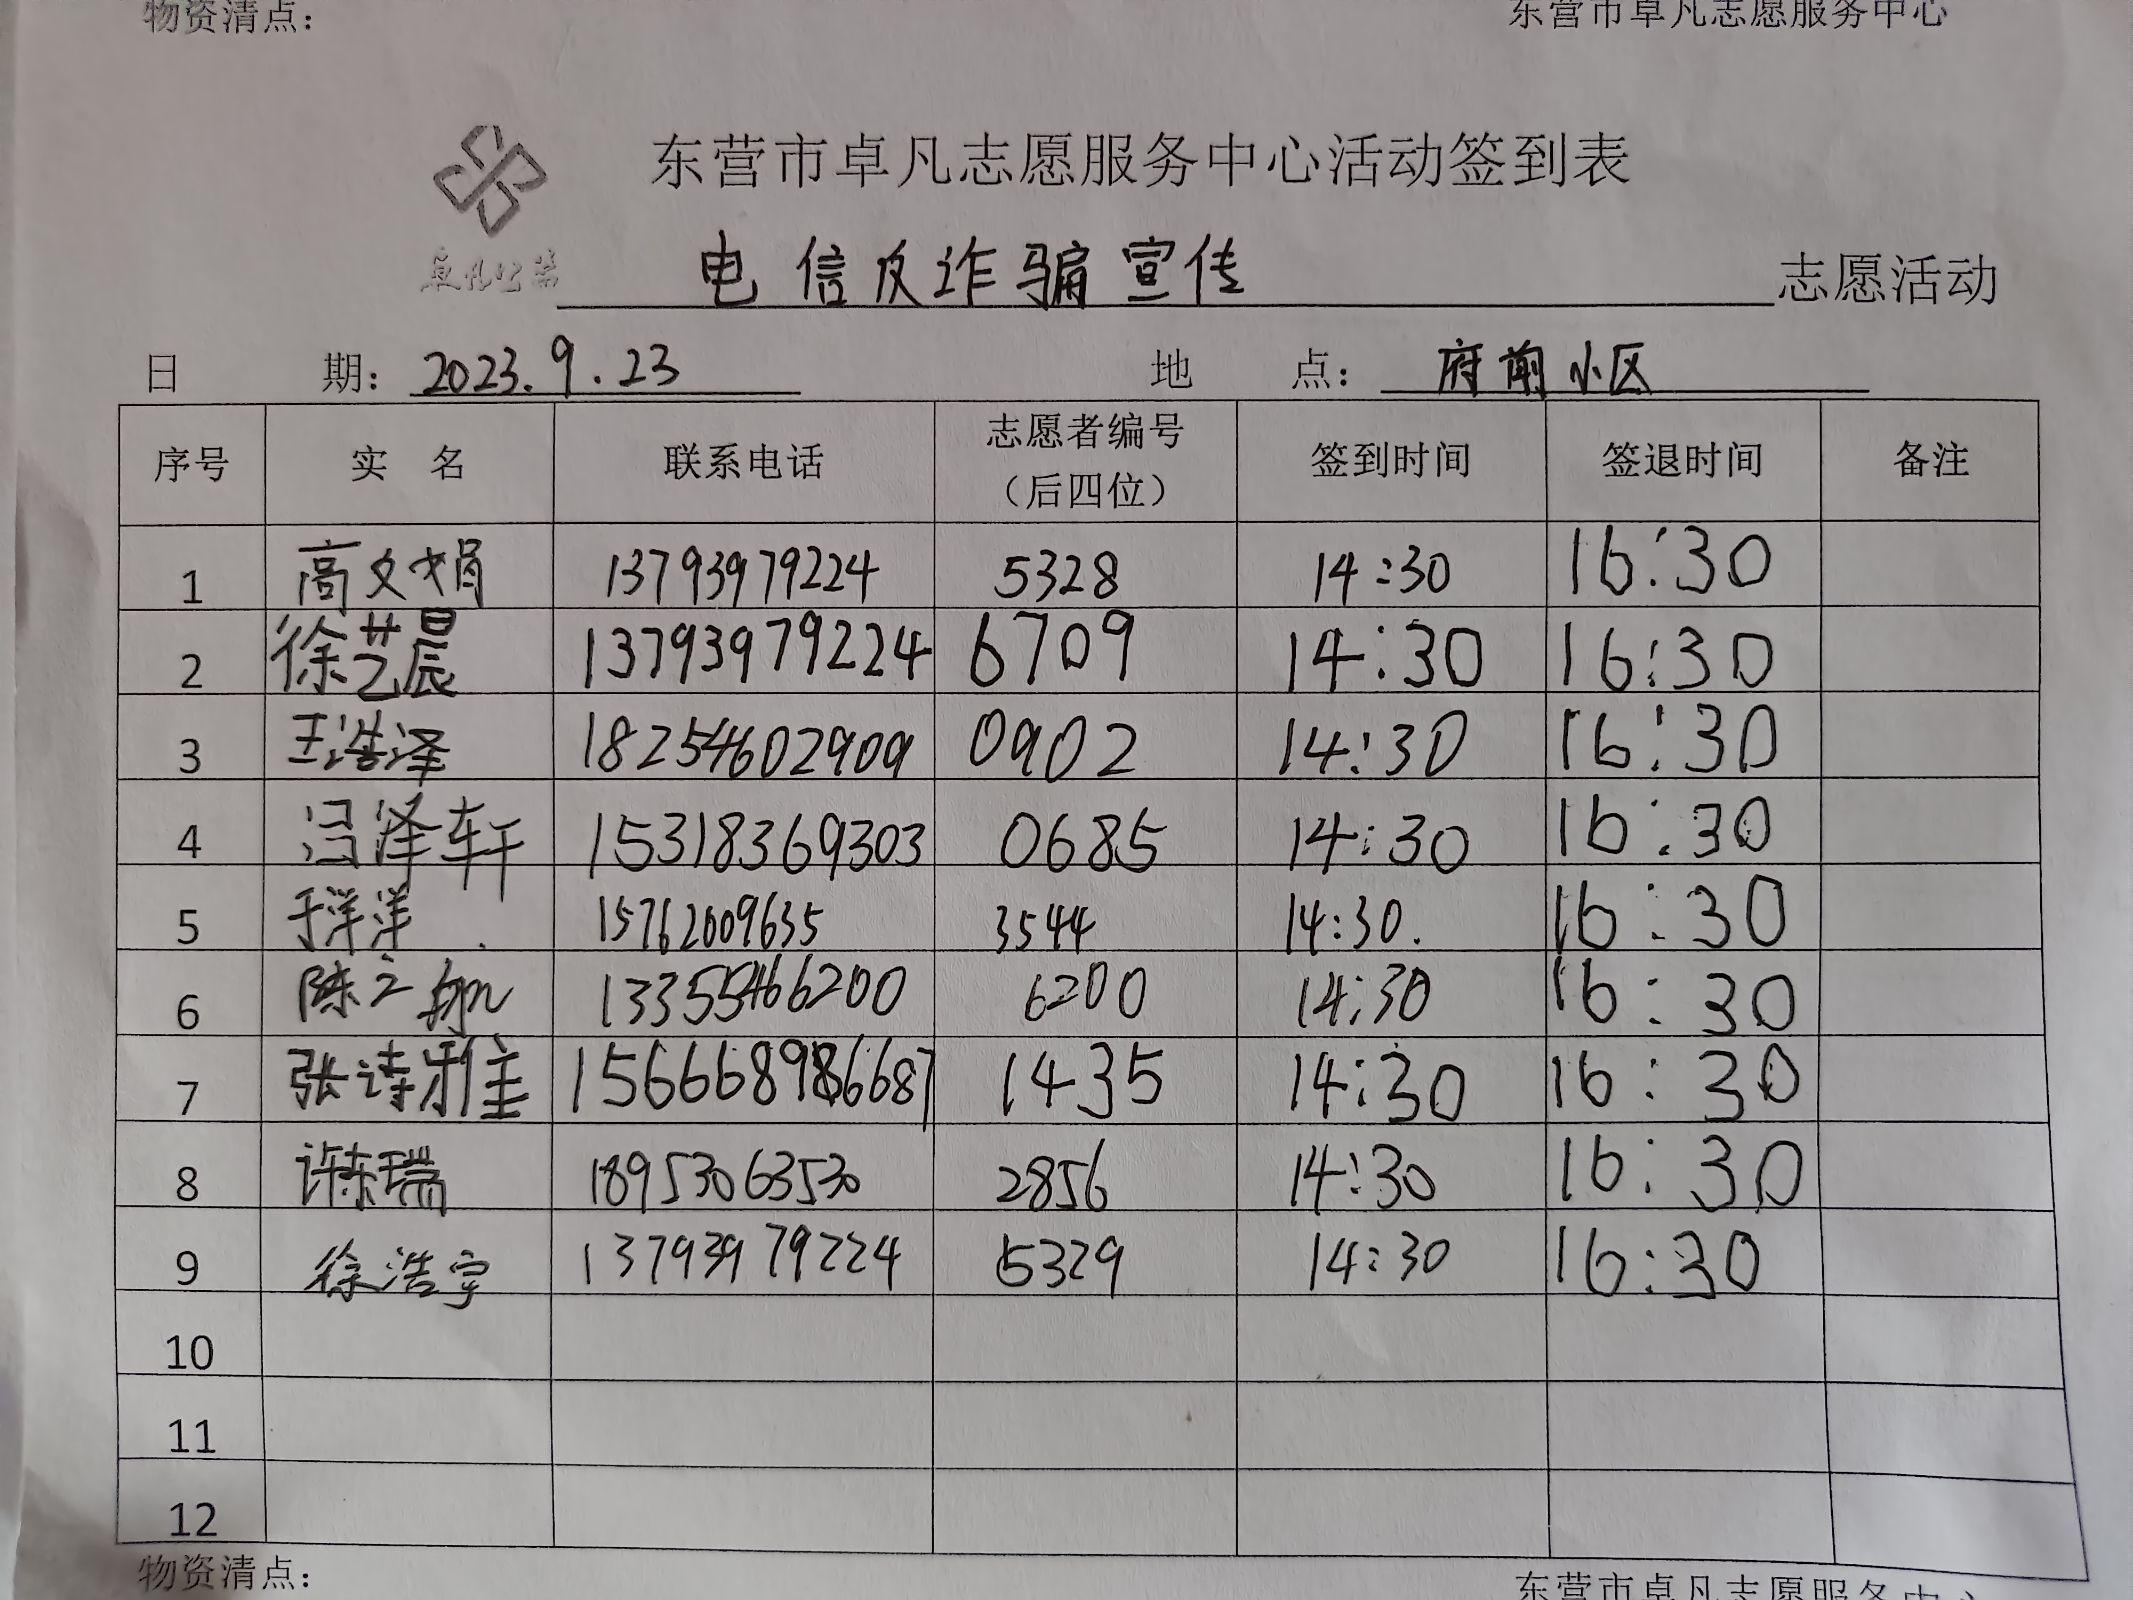 物资清点： 东营市卓凡志愿服务中心
东营市卓凡志愿服务中心活动签到表
卓凡公益
电信反诈骗宣传 志愿活动
日 期：2023.9.23 地 点：府前小区
序号 实 名 联系电话 志愿者编号（后四位） 签到时间 签退时间 备注
1 高文娟 13793979224 5328 14:30 16:30
2 徐艺晨 13793979224 6709 14:30 16:30
3 王浩泽 18254602909 0902 14:30 16:30
4 冯泽轩 15318369303 0685 14:30 16:30
5 于洋洋 15762009635 3544 14:30. 16:30
6 陈之航 13355466200 6200 14:30 16:30
7 张诗雅 1435 14:30 16:30
8 许东瑞 18953063530 2856 14:30 16:30
9 徐浩宇 13793979224 5329 14:30 16:30
10
11
12
物资清点： 东营市卓凡志愿服务中心